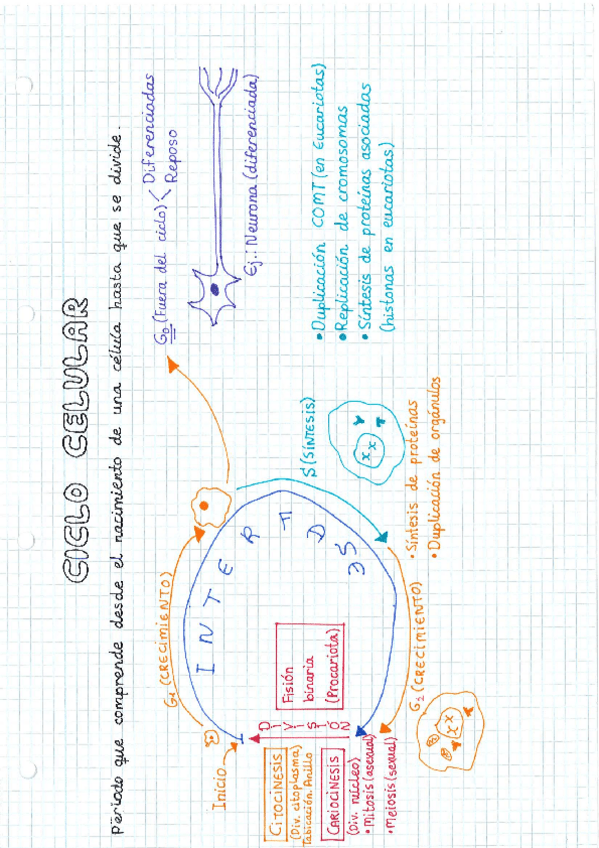 CICLO CELULAR
Período que comprende desde el nacimiento de una célula hasta que se divide.
G0 (Fuera del ciclo) < Diferenciadas
Reposo
Ej.: Neurona (diferenciada)
G1 (CRECIMIENTO)
INTERFASE
S (SÍNTESIS)
• Duplicación COMT (en Eucariotas)
• Replicación de cromosomas
• Síntesis de proteínas asociadas
(histonas en eucariotas)
Inicio
DIVISIÓN
Fisión
binaria
(Procariota)
CITOCINESIS
(Div. citoplasma)
Tabicación. Anillo
CARIOCINESIS
(Div. núcleo)
• Mitosis (asexual)
• Meiosis (sexual)
G2 (CRECIMIENTO)
• Síntesis de proteínas
• Duplicación de orgánulos